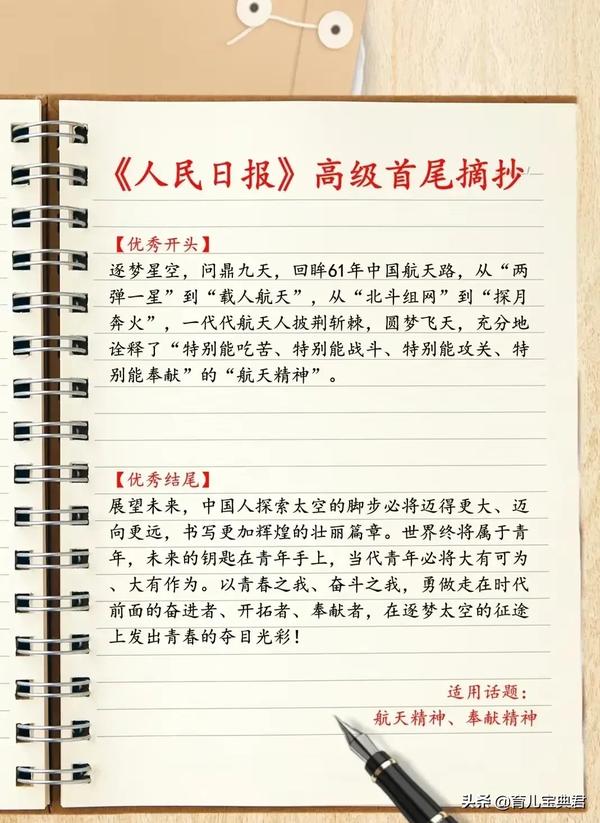 《人民日报》高级首尾摘抄
【优秀开头】
逐梦星空，问鼎九天，回眸61年中国航天路，从“两
弹一星”到“载人航天”，从“北斗组网”到“探月
奔火”，一代代航天人披荆斩棘，圆梦飞天，充分地
诠释了“特别能吃苦、特别能战斗、特别能攻关、特
别能奉献”的“航天精神”。
【优秀结尾】
展望未来，中国人探索太空的脚步必将迈得更大、迈
向更远，书写更加辉煌的壮丽篇章。世界终将属于青
年，未来的钥匙在青年手上，当代青年必将大有可为
、大有作为。以青春之我、奋斗之我，勇做走在时代
前面的奋进者、开拓者、奉献者，在逐梦太空的征途
上发出青春的夺目光彩！
适用话题：
航天精神、奉献精神
头条 @育儿宝典君